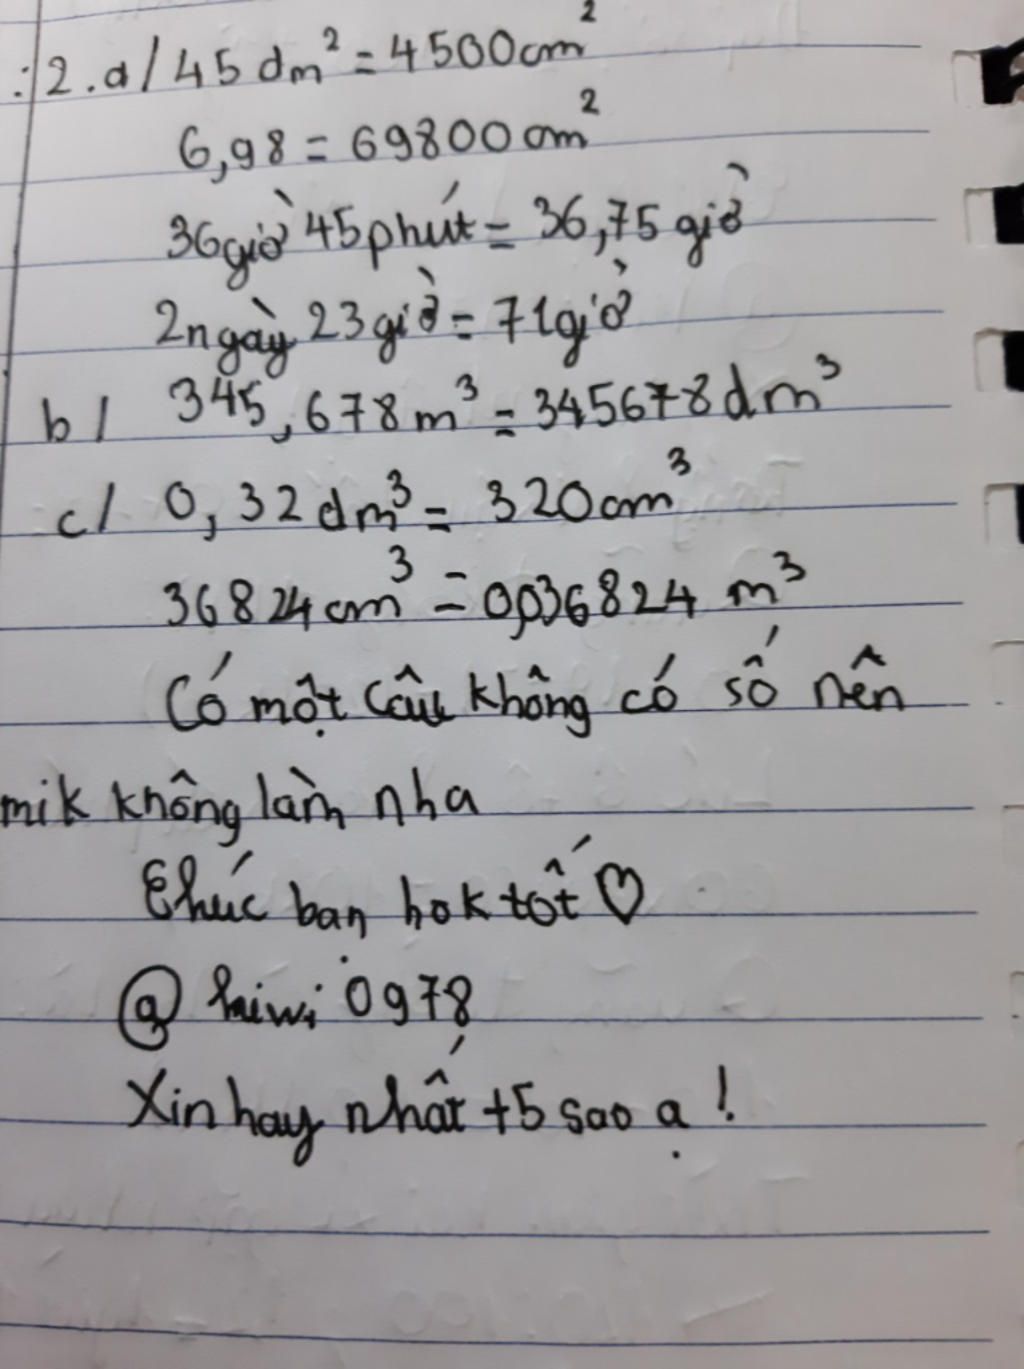 :2.a/ 45 dm² = 4500cm²
6,98 = 69800cm²
36giờ 45phút = 36,75 giờ
2ngày 23giờ = 71giờ
b/ 345,678m³ = 345678dm³
c/ 0,32dm³ = 320cm³
36824cm³ = 0,036824 m³
Có một câu không có số nên
mik không làm nha
Chúc bạn hok tốt ♡
@ 0978
Xin hay nhất +5 sao ạ !